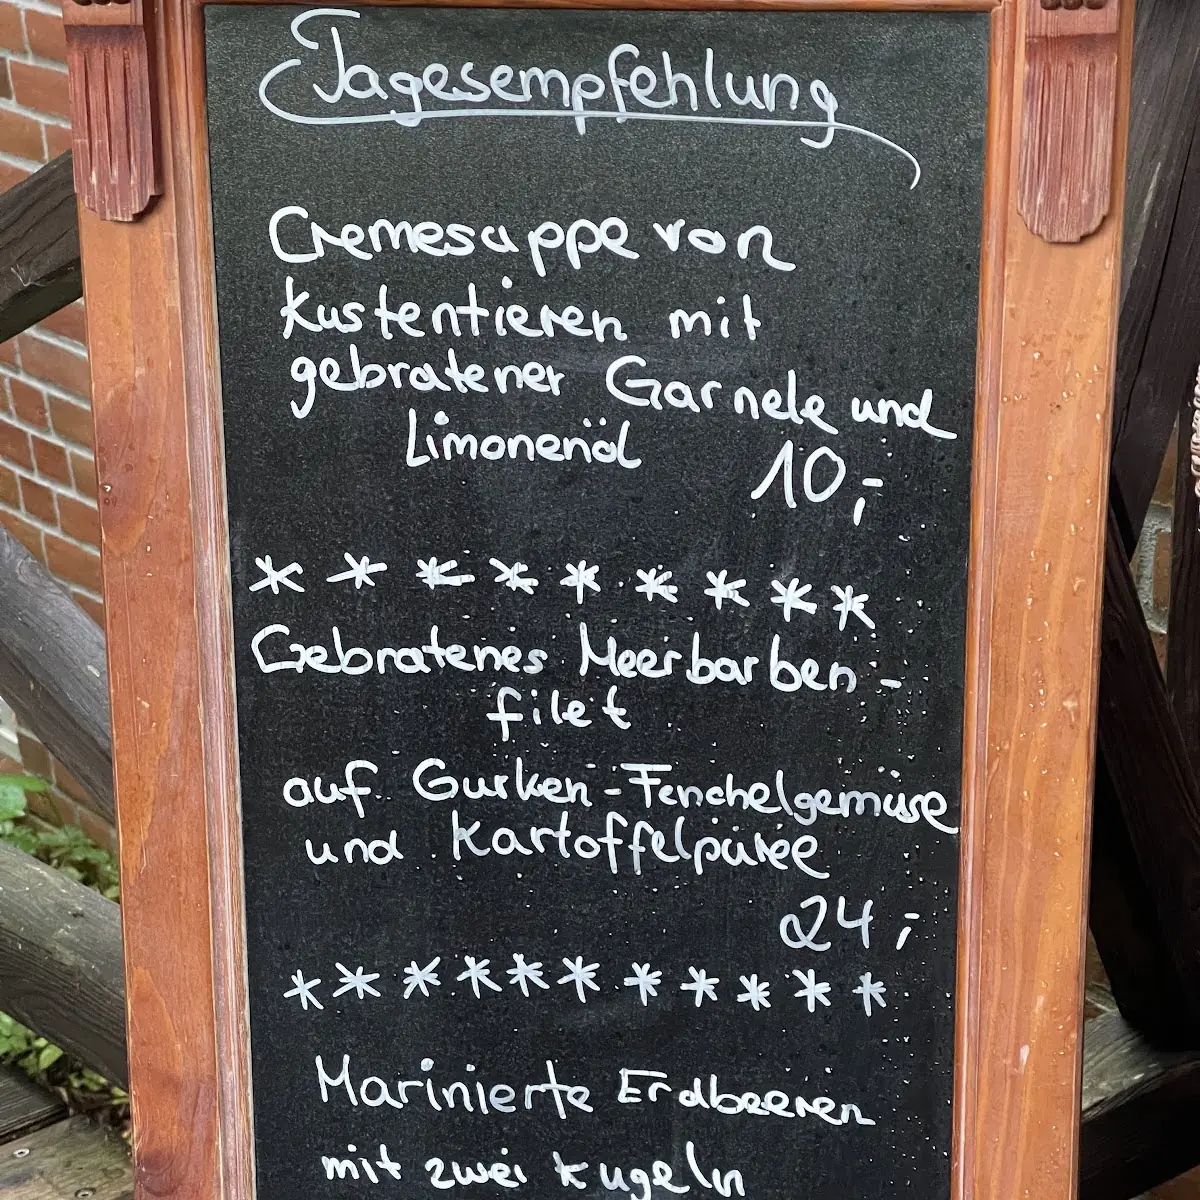 Tagesempfehlung
Cremesuppe von
Kustentieren mit
gebratener Garnele und
Limonenöl 10,-
* * * * * * * * *
Gebratenes Meerbarben-
filet
auf Gurken-Fenchelgemüse
und Kartoffelpüree
24,-
* * * * * * * * * * *
Marinierte Erdbeeren
mit zwei Kugeln